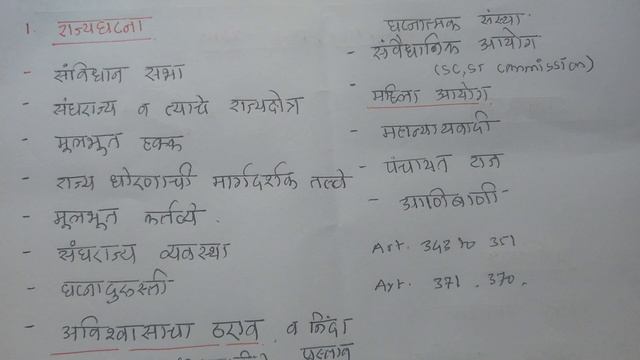 1. राज्यघटना
- संविधान सभा
- संघराज्य व त्याचे राज्यक्षेत्र
- मूलभूत हक्क
- राज्य धोरणाची मार्गदर्शक तत्वे
- मूलभूत कर्तव्ये.
- संघराज्य व्यवस्था
- घटनादुरुस्ती
- अविश्वासाचा ठराव व निंदा
प्रस्ताव
घटनात्मक संस्था
- संवैधानिक आयोग
(SC, ST Commission)
- महिला आयोग
- महान्यायवादी
- पंचायत राज
- आणिबाणी
Art. 343 to 351
Art. 371. 370.